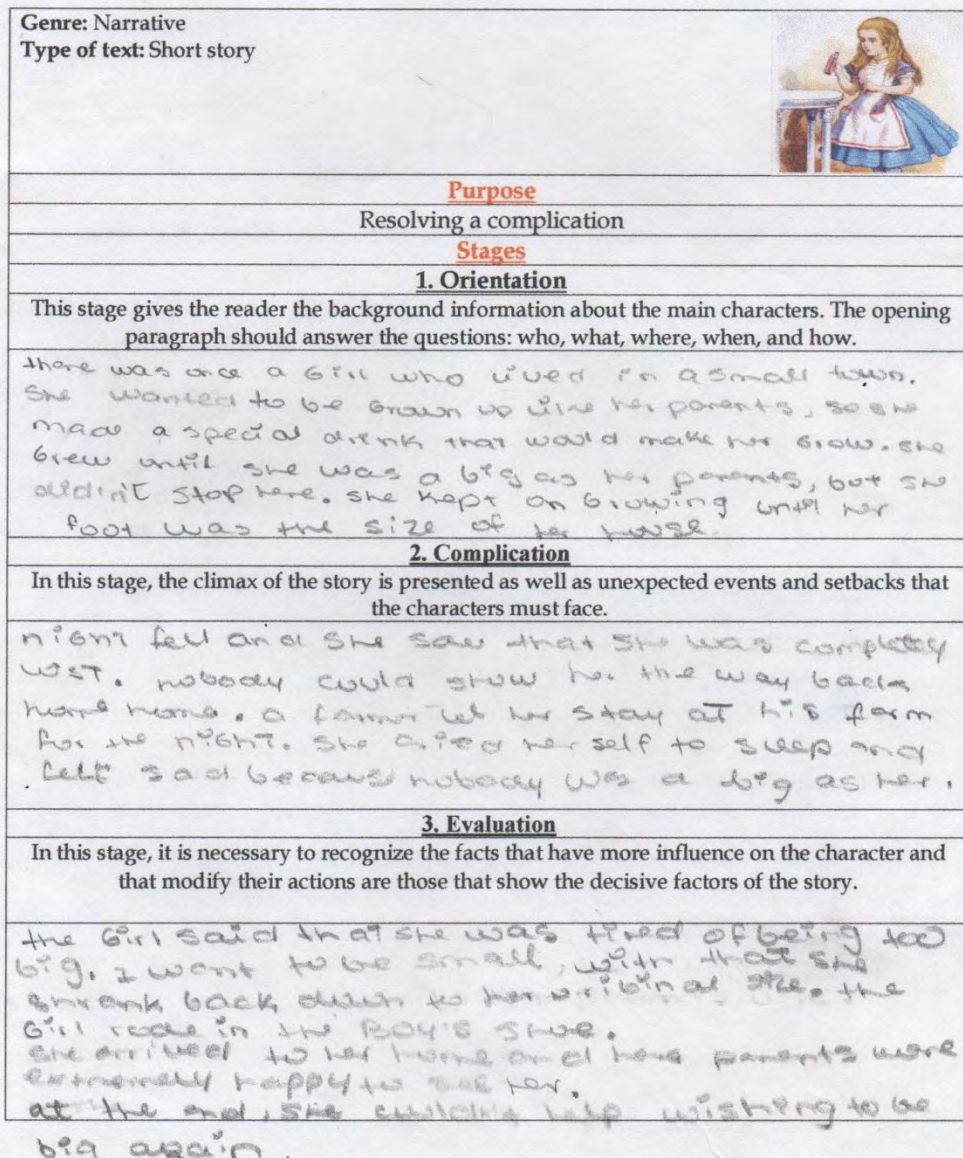 Genre: Narrative
Type of text: Short story
Purpose
Resolving a complication
Stages
1. Orientation
This stage gives the reader the background information about the main characters. The opening
paragraph should answer the questions: who, what, where, when, and how.
there was once a Girl who lived in a small town.
She wanted to be Grown up like her parents, so she
made a special drink that would make her Grow. she
Grew until she was a big as her parents, but she
didin't stop here. she kept on Growing until her
foot was the size of her house.
2. Complication
In this stage, the climax of the story is presented as well as unexpected events and setbacks that
the characters must face.
niGht fell and she saw that she was completey
lost. nobody could show her the way back
home home. a farmer let her stay at his farm
for the niGht. she cried her self to sleep and
felt sad because nobody was a big as her.
3. Evaluation
In this stage, it is necessary to recognize the facts that have more influence on the character and
that modify their actions are those that show the decisive factors of the story.
the Girl said that she was tired of being too
big. I want to be small, with that she
shrank back down to her oribinal size. the
Girl rode in the BOY'S shoe.
she arrived to her home and here parents were
extremely happy to see her.
at the end, she couldn't help wishing to be
big again.